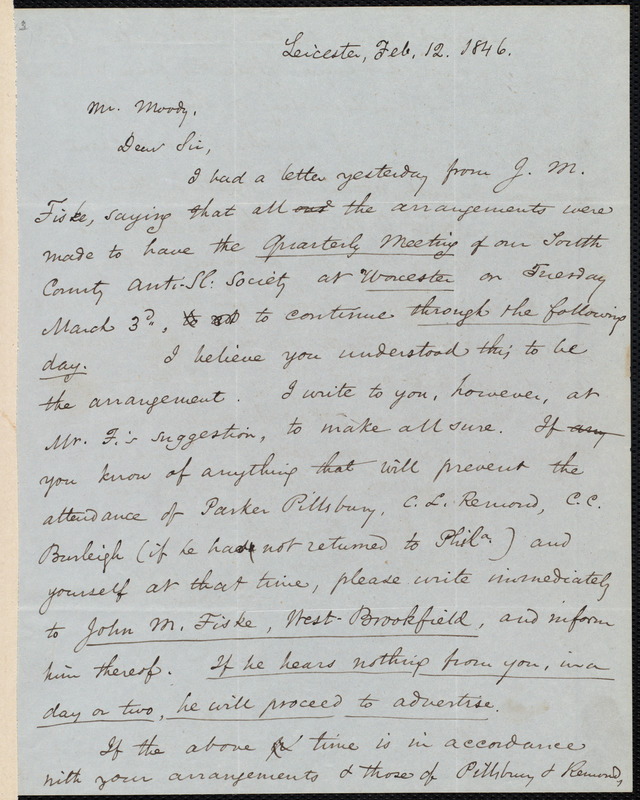 Leicester, Feb. 12. 1846.
Mr. Moody,
Dear Sir,
I had a letter yesterday from J. M.
Fiske, saying that all and the arrangements were
made to have the Quarterly Meeting of our South
County Anti-Sl: Society at Worcester on Tuesday
March 3d., to continue through the following
day. I believe you understood this to be
the arrangement. I write to you, however, at
Mr. F.'s suggestion, to make all sure. If any
you know of anything that will prevent the
attendance of Parker Pillsbury, C. L. Remond, C. C.
Burleigh (if he has not returned to Phila.) and
yourself at that time, please write immediately
to John M. Fiske, West-Brookfield, and inform
him thereof. If he hears nothing from you, in a
day or two, he will proceed to advertise.
If the above time is in accordance
with your arrangements & those of Pillsbury & Remond,